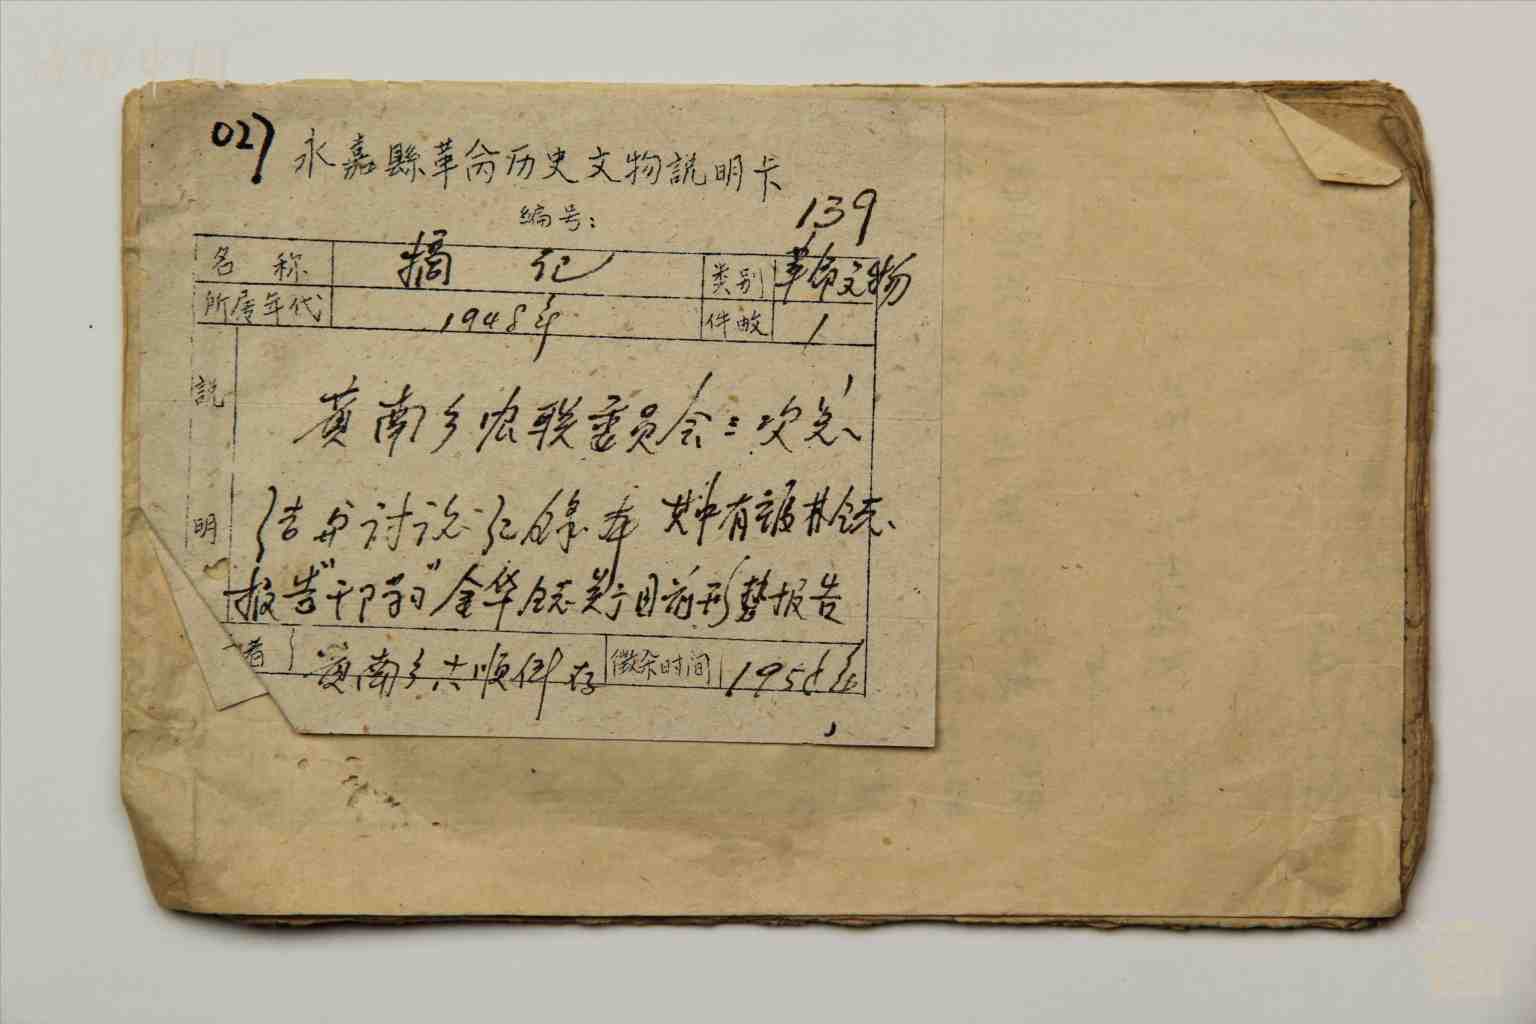 027
永嘉縣革命历史文物説明卡
编号: 139
名称 摘记 类别 革命文物
所居年代 1948年 件数 1
説明
黄南乡农联委员会三次总
结与讨论记录本 其中有
报告 金华同志关于目前形势报告
者 黄南乡 顺 存 徵集时间 1958年